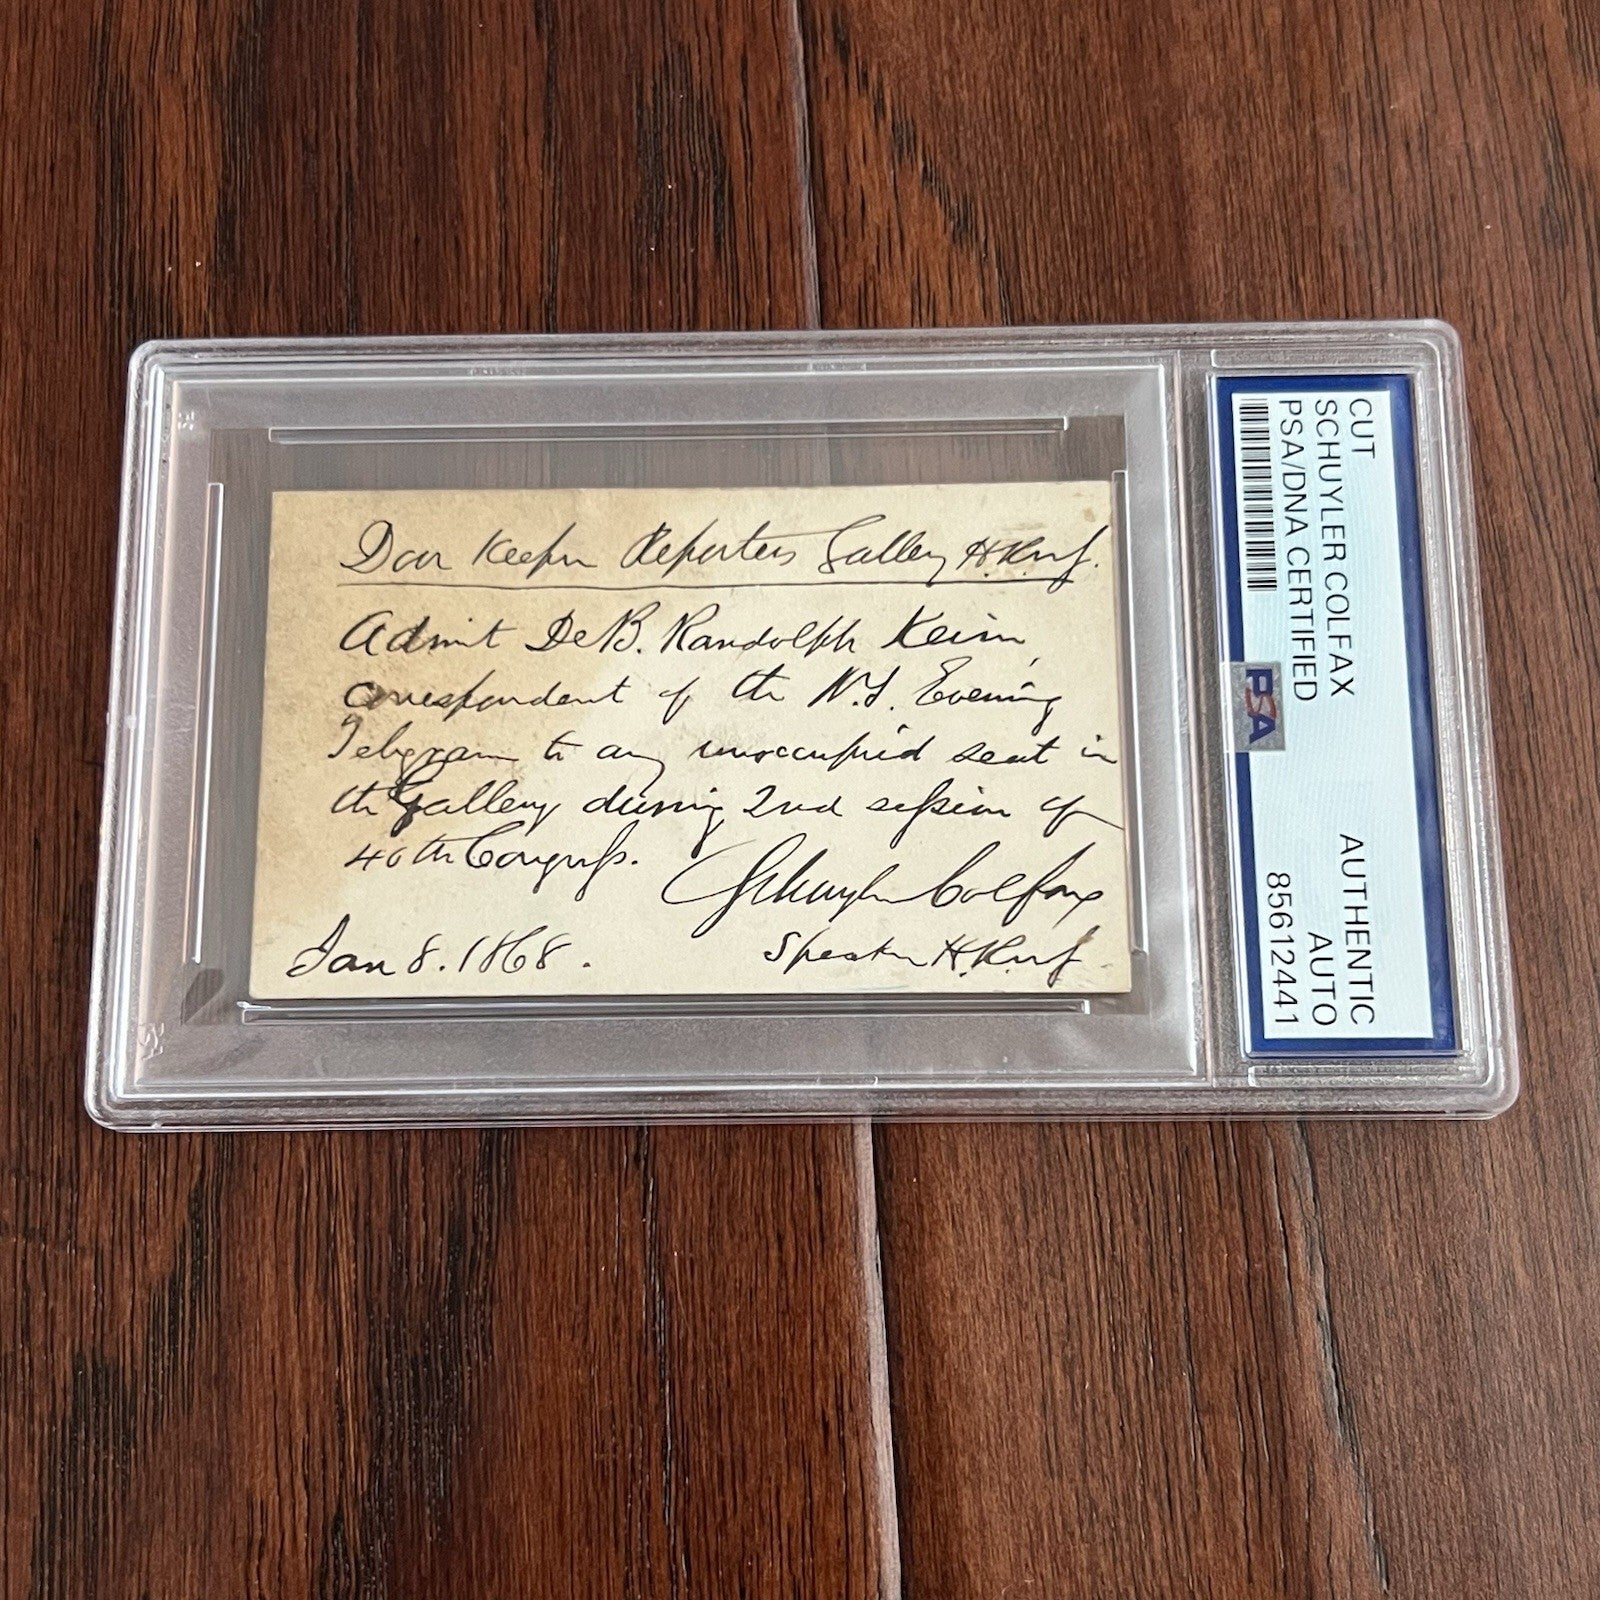 Door Keeper Reporters Gallery H. Reps.
Admit DeB. Randolph Keim,
correspondent of the N.Y. Evening
Telegram to any unoccupied seat in
the Gallery during 2nd session of
40th Congress.
Schuyler Colfax
Jan 8. 1868.
Speaker H. Reps.
CUT
SCHUYLER COLFAX
PSA/DNA CERTIFIED
AUTHENTIC
AUTO
85612441
PSA